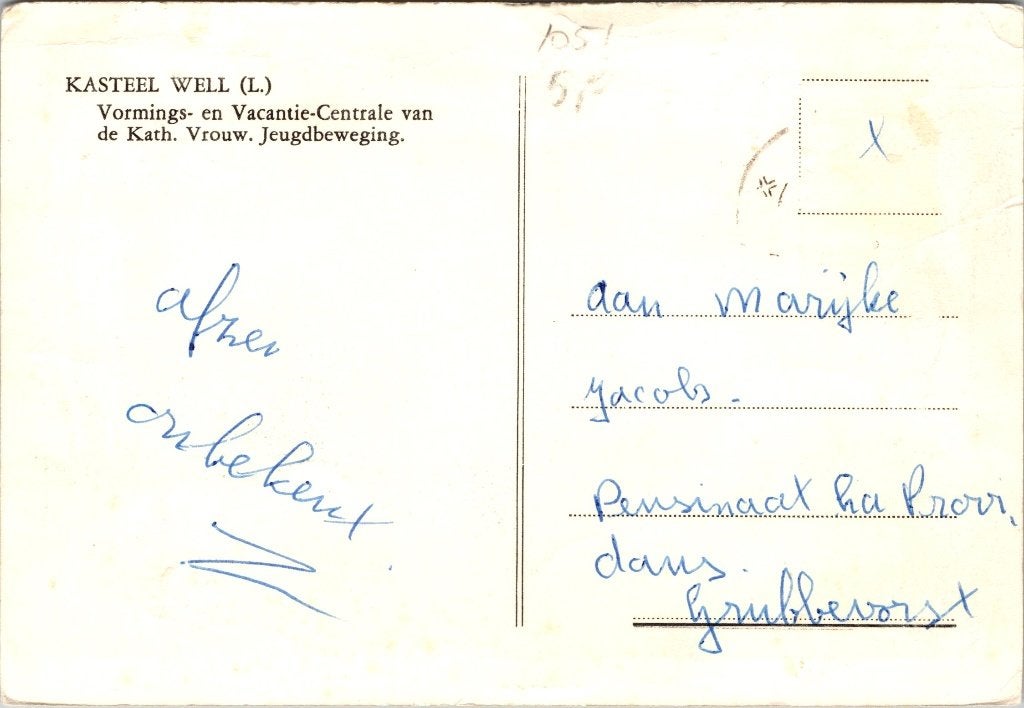 KASTEEL WELL (L.)
Vormings- en Vacantie-Centrale van
de Kath. Vrouw. Jeugdbeweging.
1051
x
aan Marijke
Jacobs.
Pensinaat ha Provi,
dans.
Grubbevorst
afzen
onbekent